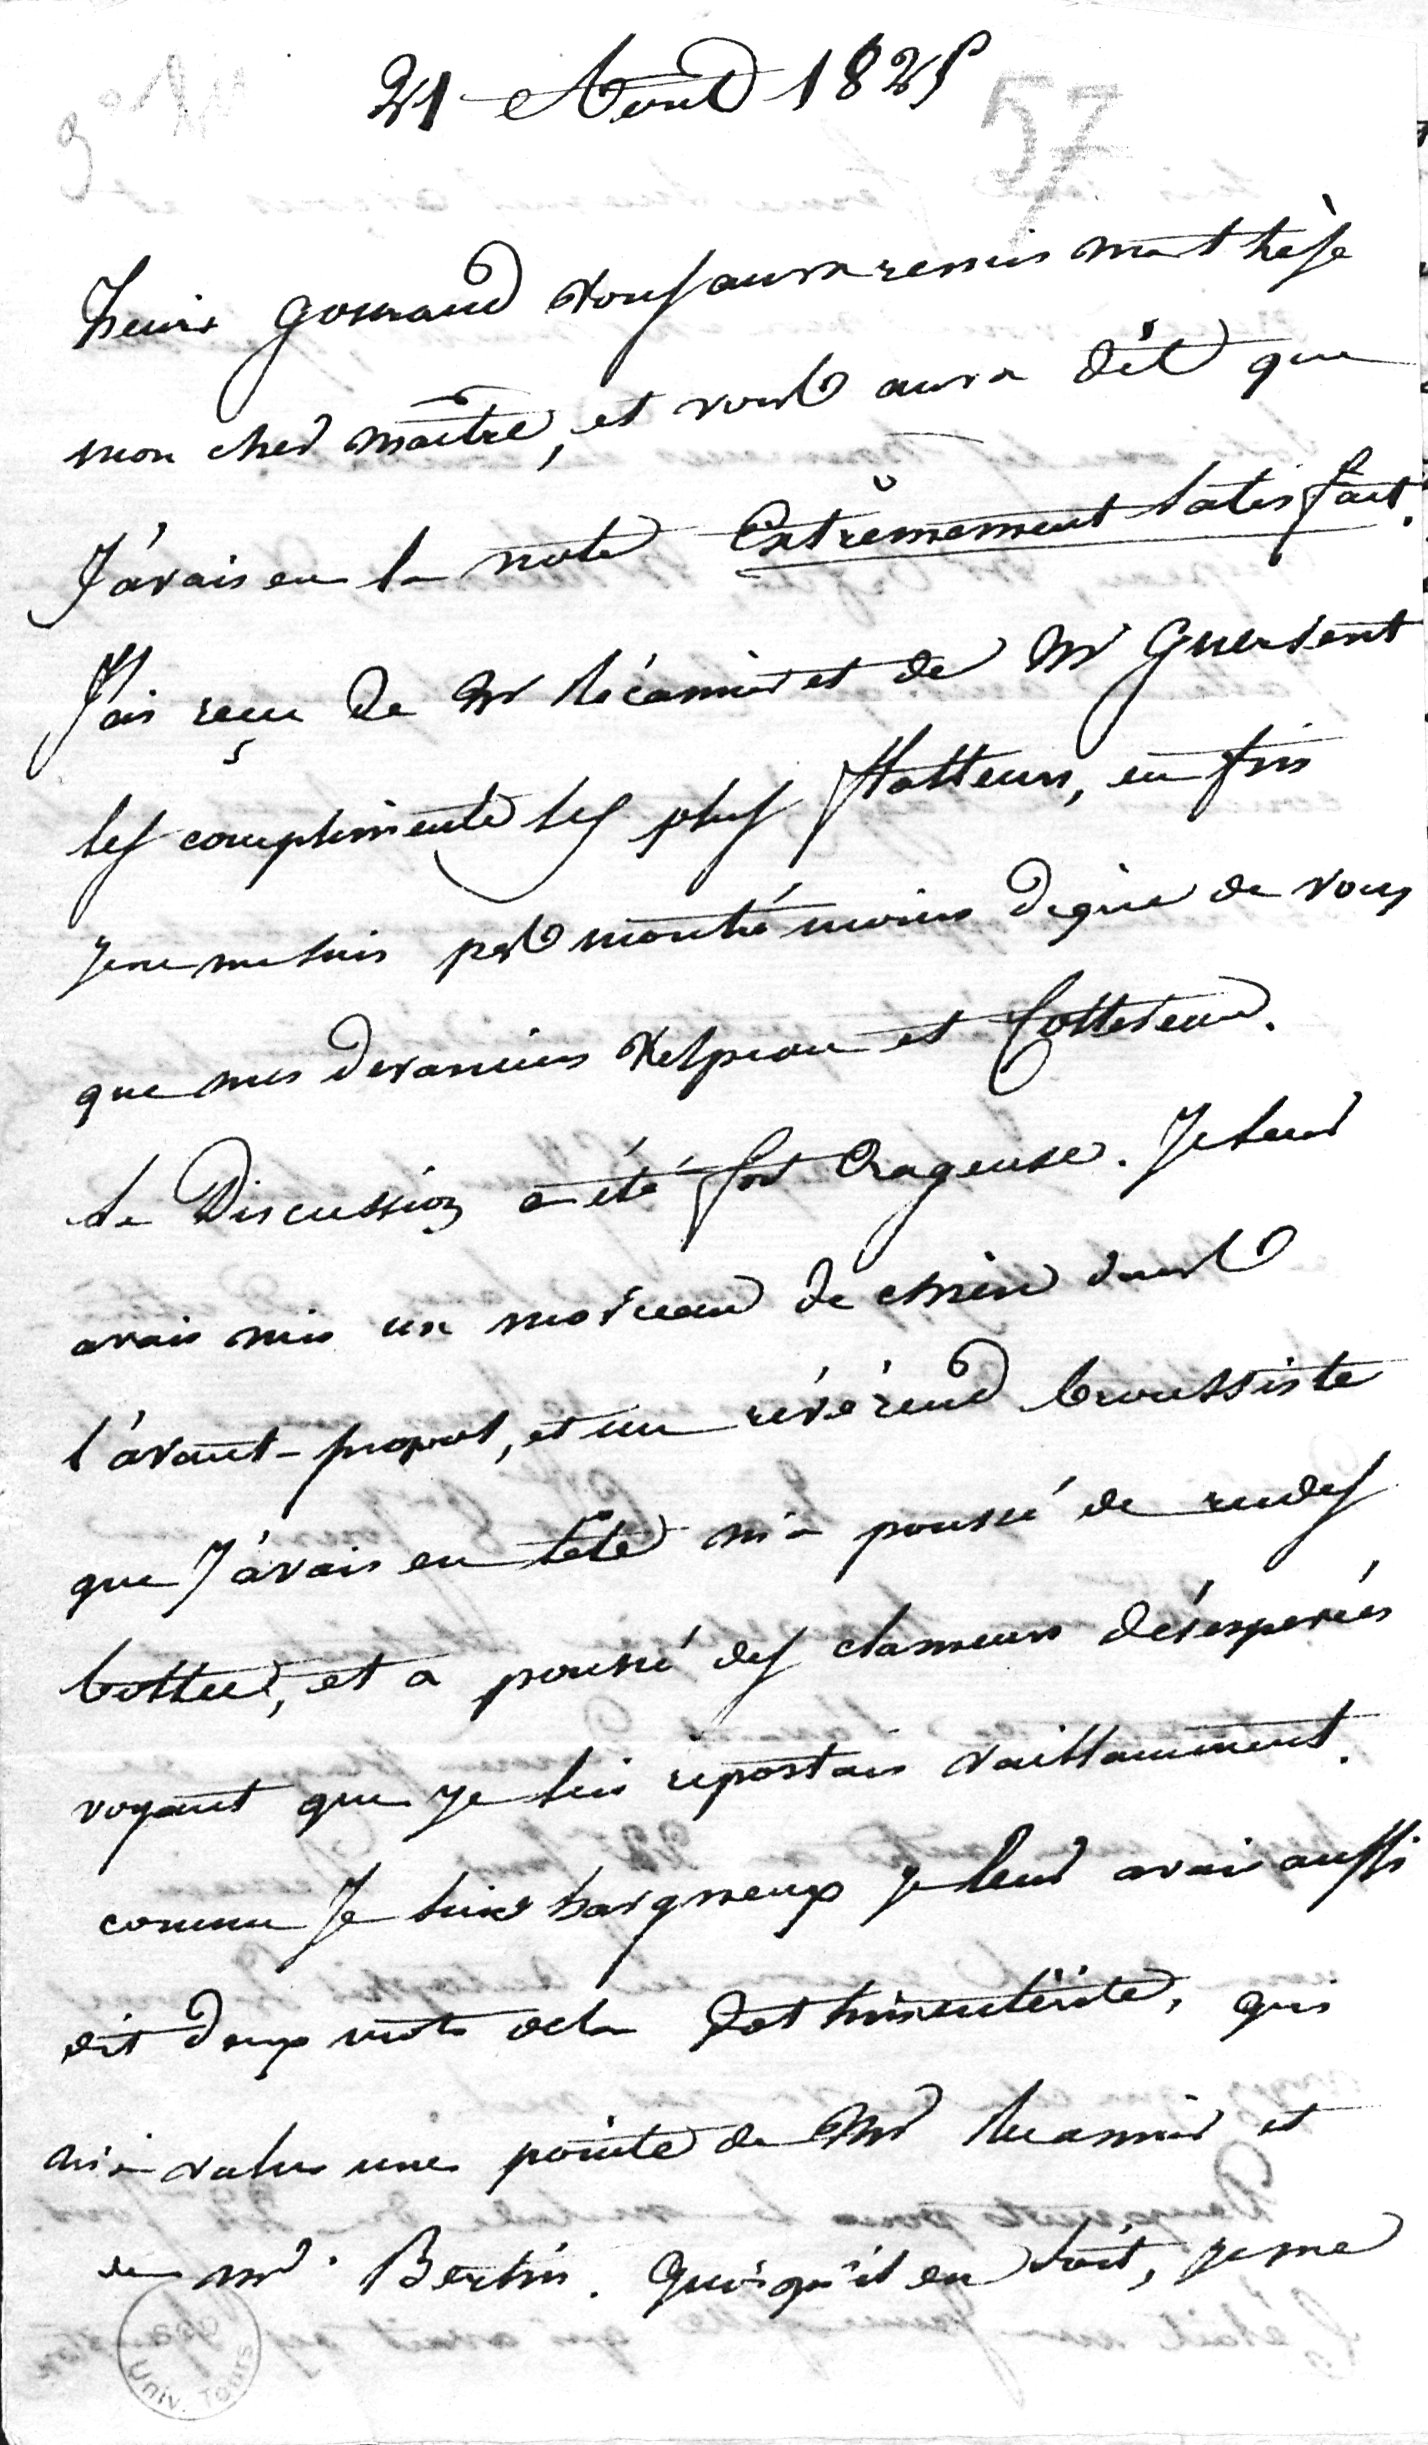 21 Aout 1825
57
henri Gouraud vous aura remis ma thèse
mon cher maître, et vous aura dit que
J'avais eu la note Extrêmement satisfait.
J'ai reçu de Mr Récamier et de Mr Guersent
les compliments les plus flatteurs, enfin
je ne me suis pas montré moins digne de vous
que mes devanciers Velpeau et Cottereau.
La Discussion a été fort orageuse. Je leur
avais mis un morceau de chien dans
l'avant-propos, et un révérend broussiste
que J'avais en tête m'a poussé de rudes
bottes, et a poussé des clameurs désespérées
voyant que je lui ripostais vaillamment.
comme Je suis hargneux je leur avais aussi
dit deux mots de la dothinentérite, qui
m'a valu une pointe de Mr Récamier et
de mr. Bertin. Quoiqu'il en soit, je me
Univ. Tours